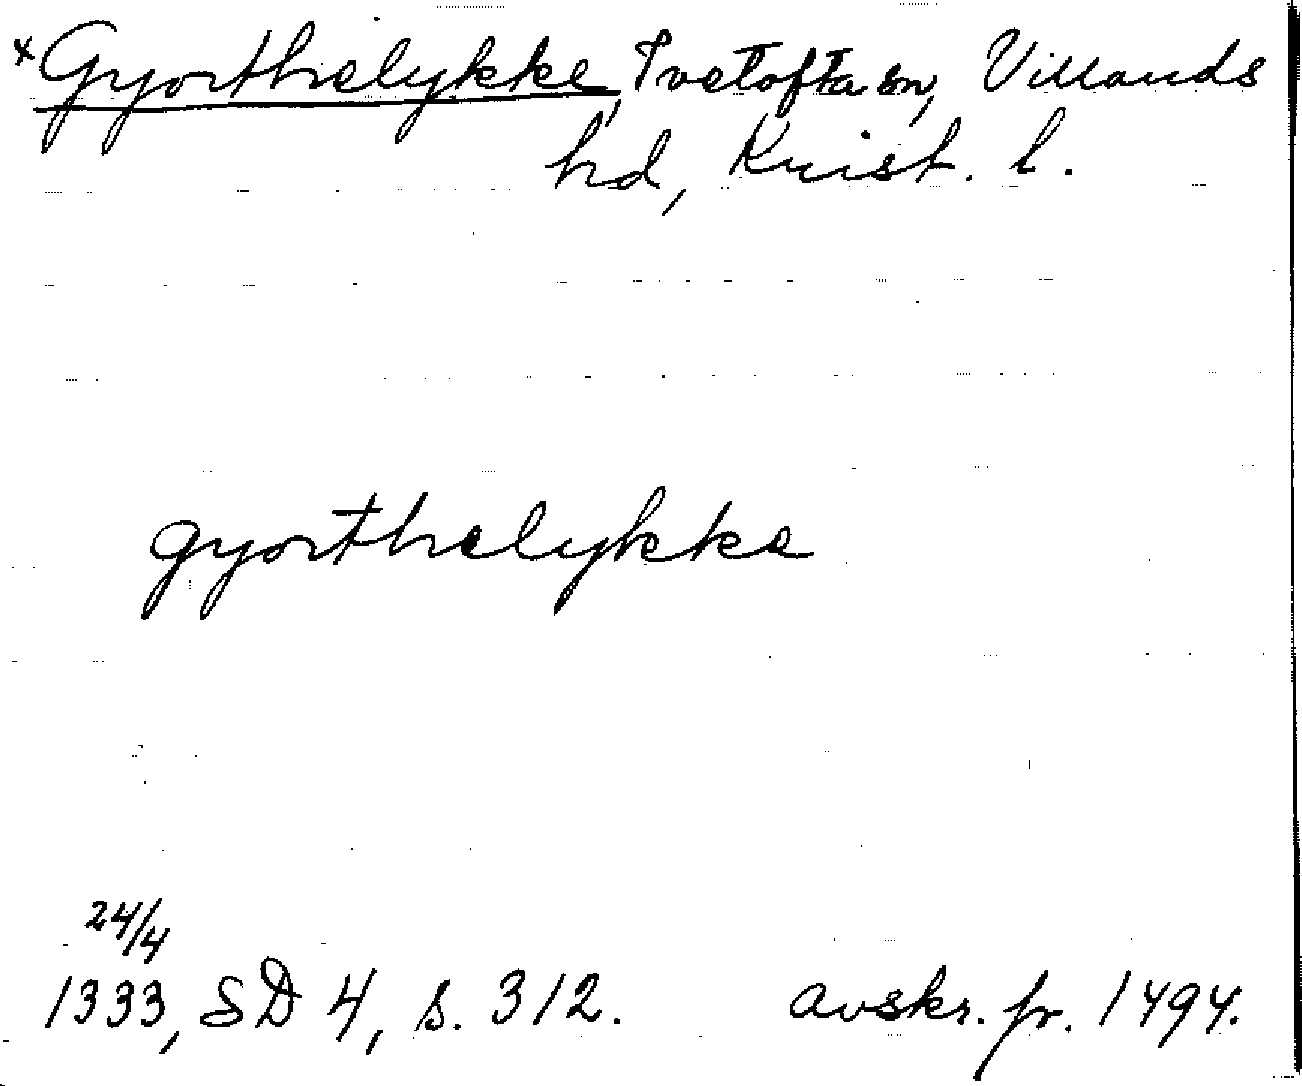 ×Gyorthelykke, Tvetofta sn, Villands
hd, Krist. l.
gyorthelykke
24/4
1333, SD 4, s. 312. avskr. fr. 1494.